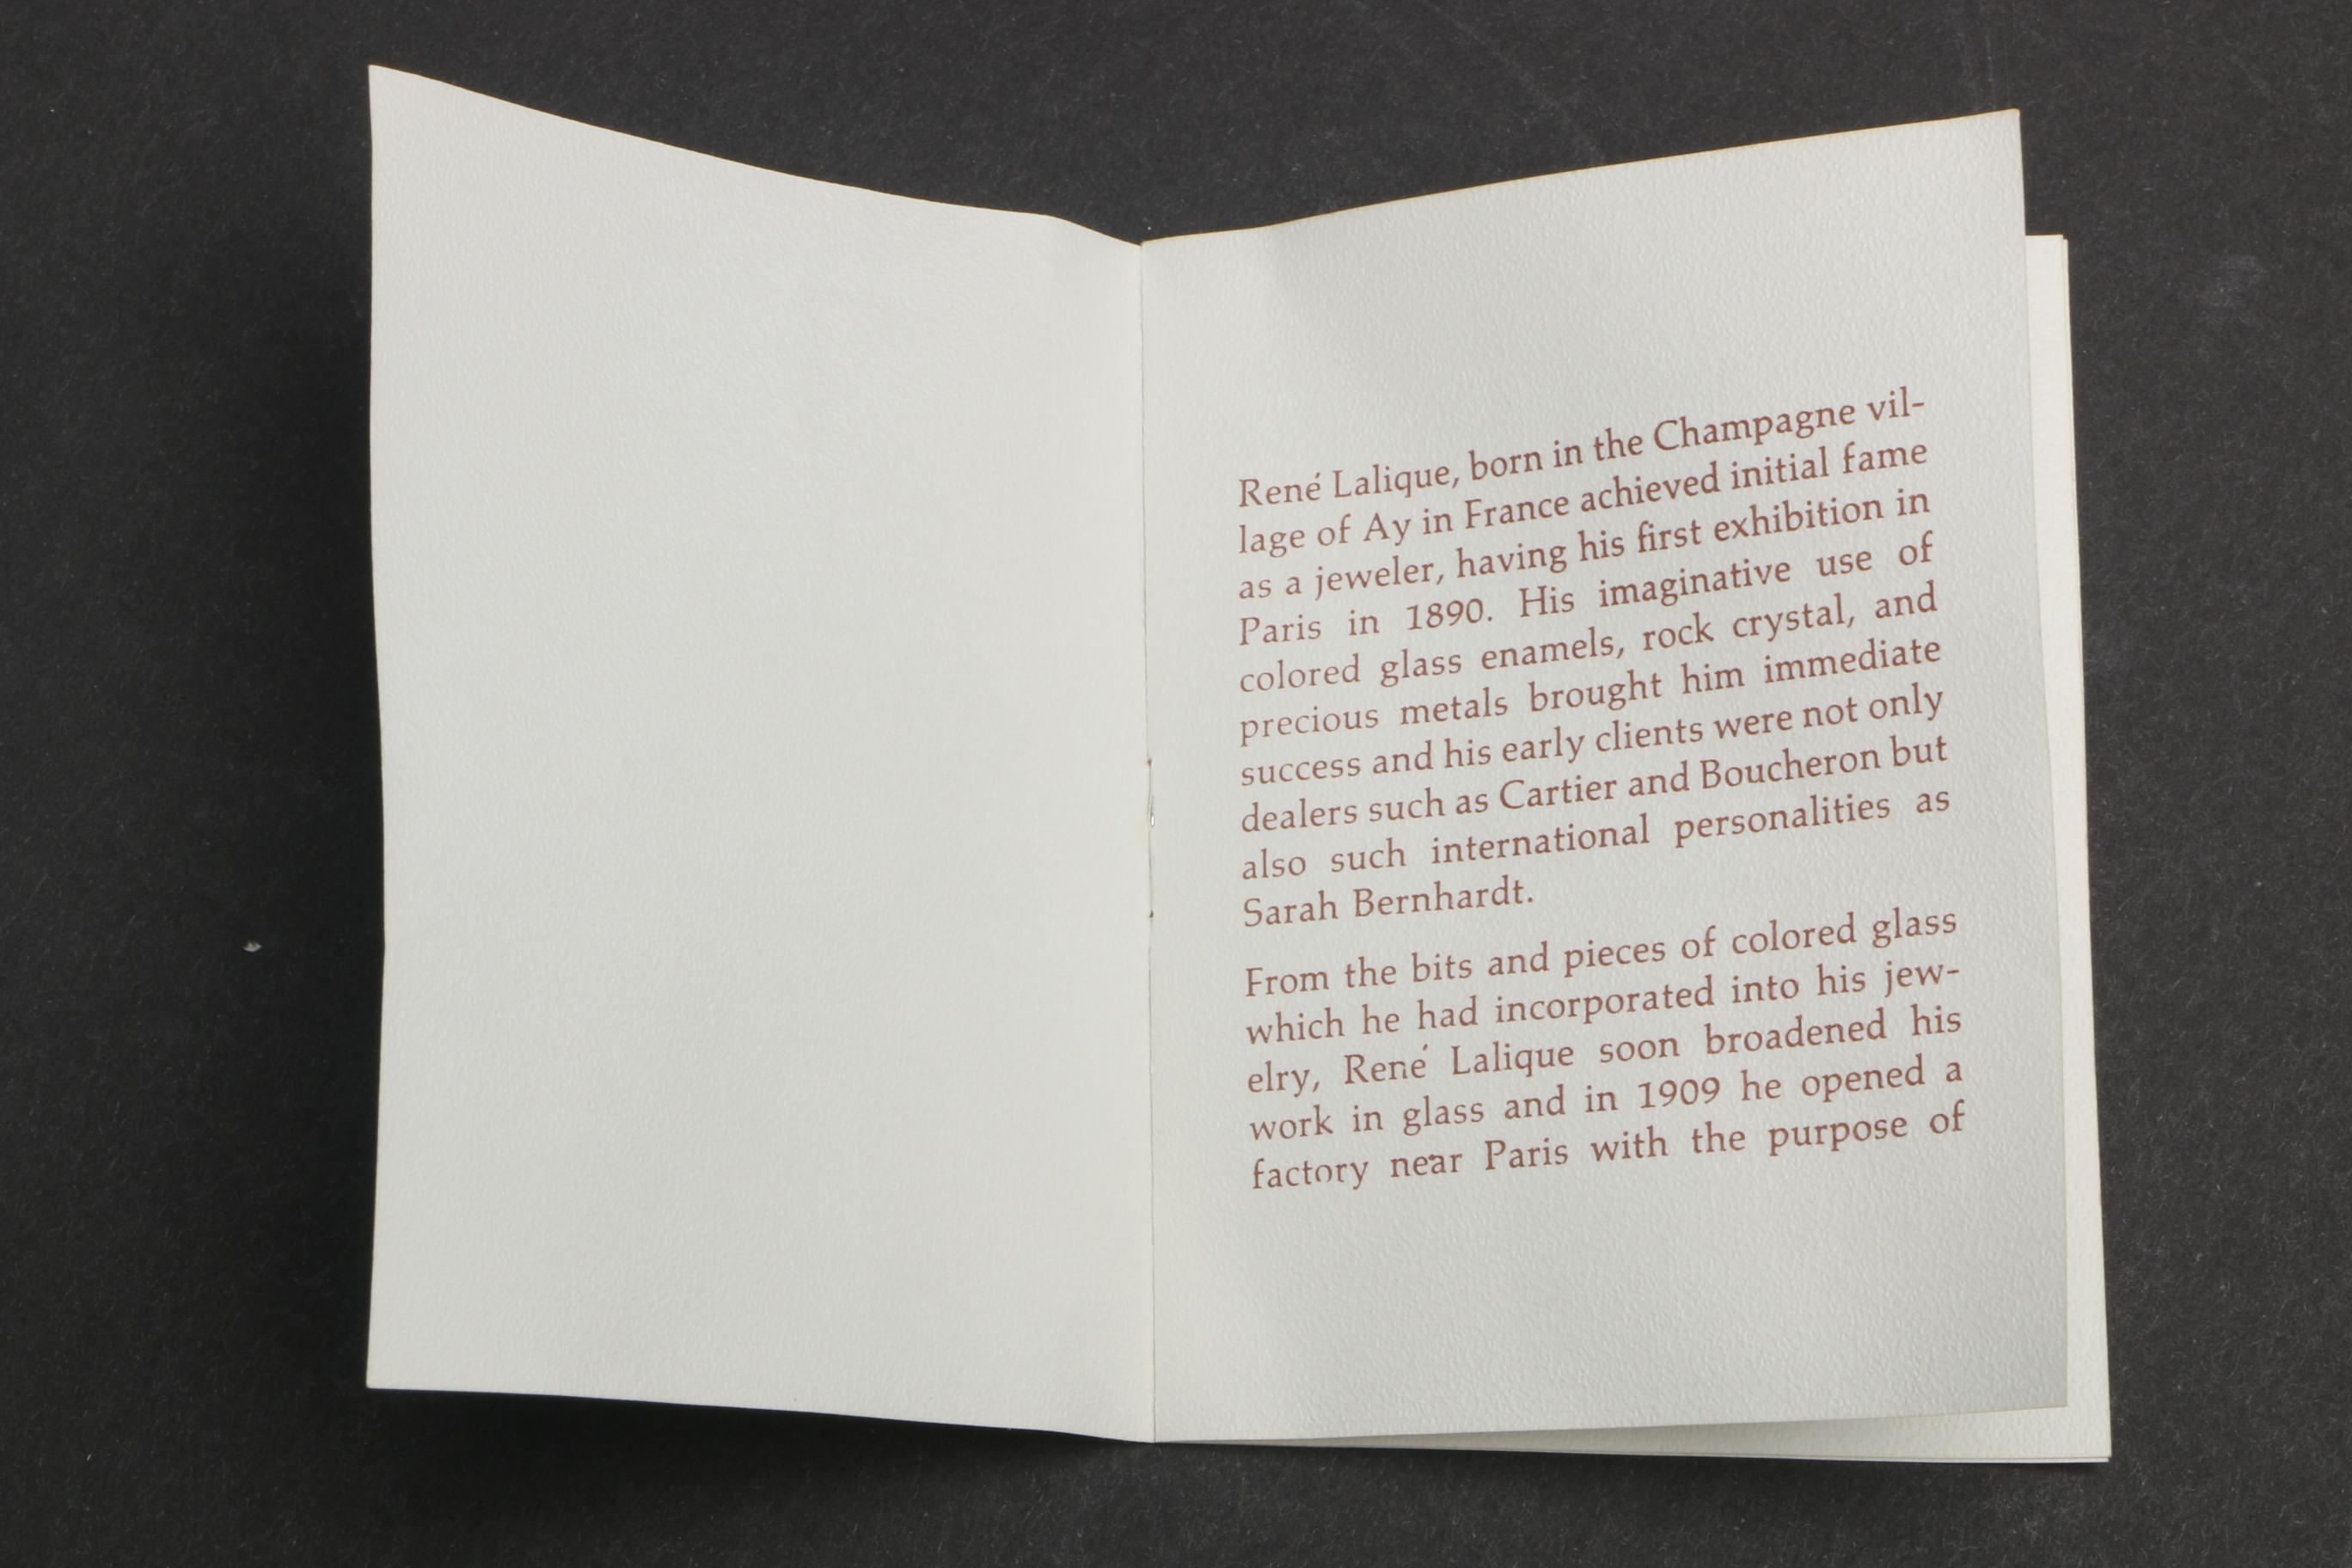 René Lalique, born in the Champagne vil-
lage of Ay in France achieved initial fame
as a jeweler, having his first exhibition in
Paris in 1890. His imaginative use of
colored glass enamels, rock crystal, and
precious metals brought him immediate
success and his early clients were not only
dealers such as Cartier and Boucheron but
also such international personalities as
Sarah Bernhardt.
From the bits and pieces of colored glass
which he had incorporated into his jew-
elry, René Lalique soon broadened his
work in glass and in 1909 he opened a
factory near Paris with the purpose of